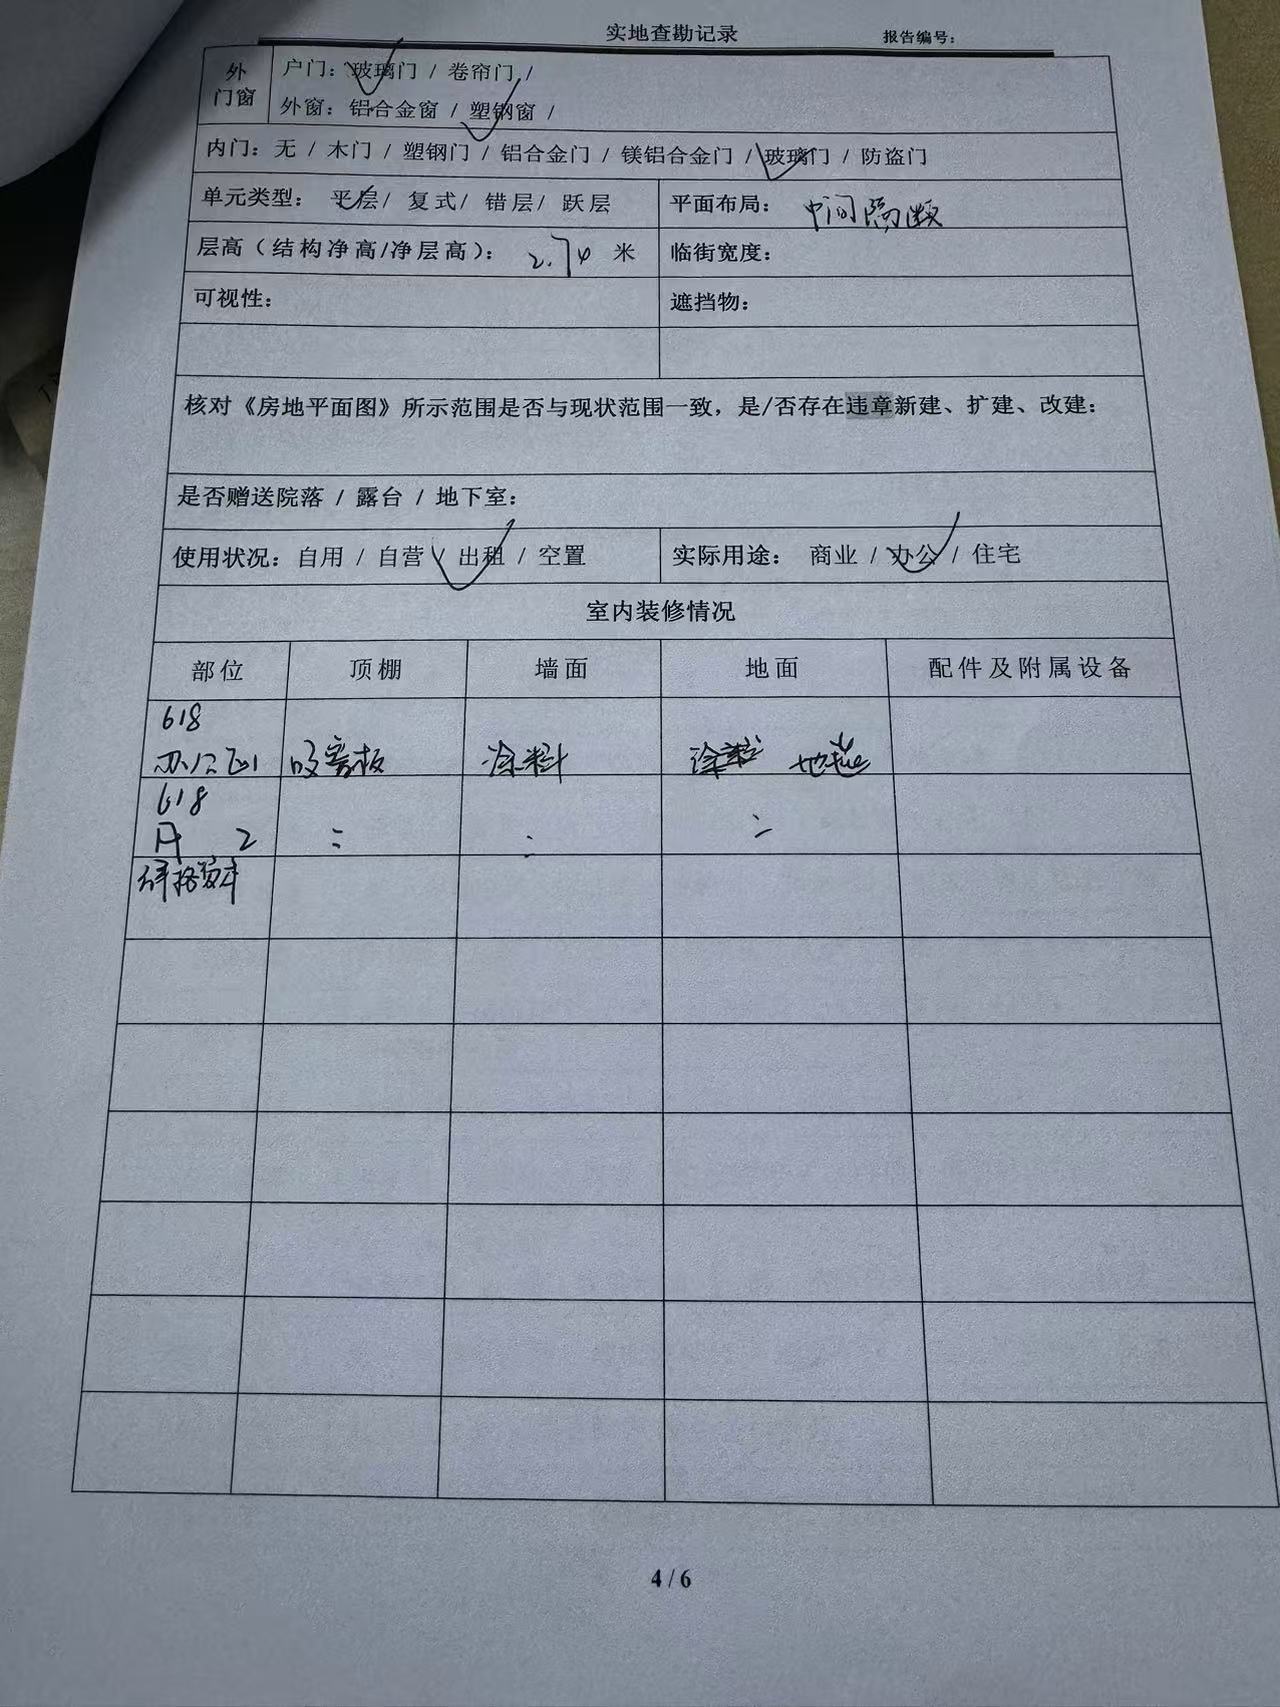 实地查勘记录 报告编号：
外门窗 户门：玻璃门 / 卷帘门 /
外窗：铝合金窗 / 塑钢窗 /
内门：无 / 木门 / 塑钢门 / 铝合金门 / 镁铝合金门 / 玻璃门 / 防盗门
单元类型： 平层/ 复式/ 错层/ 跃层 平面布局： 中间隔断
层高（结构净高/净层高）： 2.74 米 临街宽度：
可视性： 遮挡物：
核对《房地平面图》所示范围是否与现状范围一致，是/否存在违章新建、扩建、改建：
是否赠送院落 / 露台 / 地下室：
使用状况：自用 / 自营 / 出租 / 空置 实际用途： 商业 / 办公 / 住宅
室内装修情况
部位 顶棚 墙面 地面 配件及附属设备
618
办公区1 吸音板 涂料 涂料 地毯
618
2
4 / 6